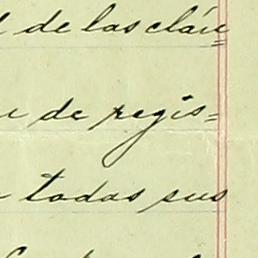 de las cláu=
de regis=
todas sus